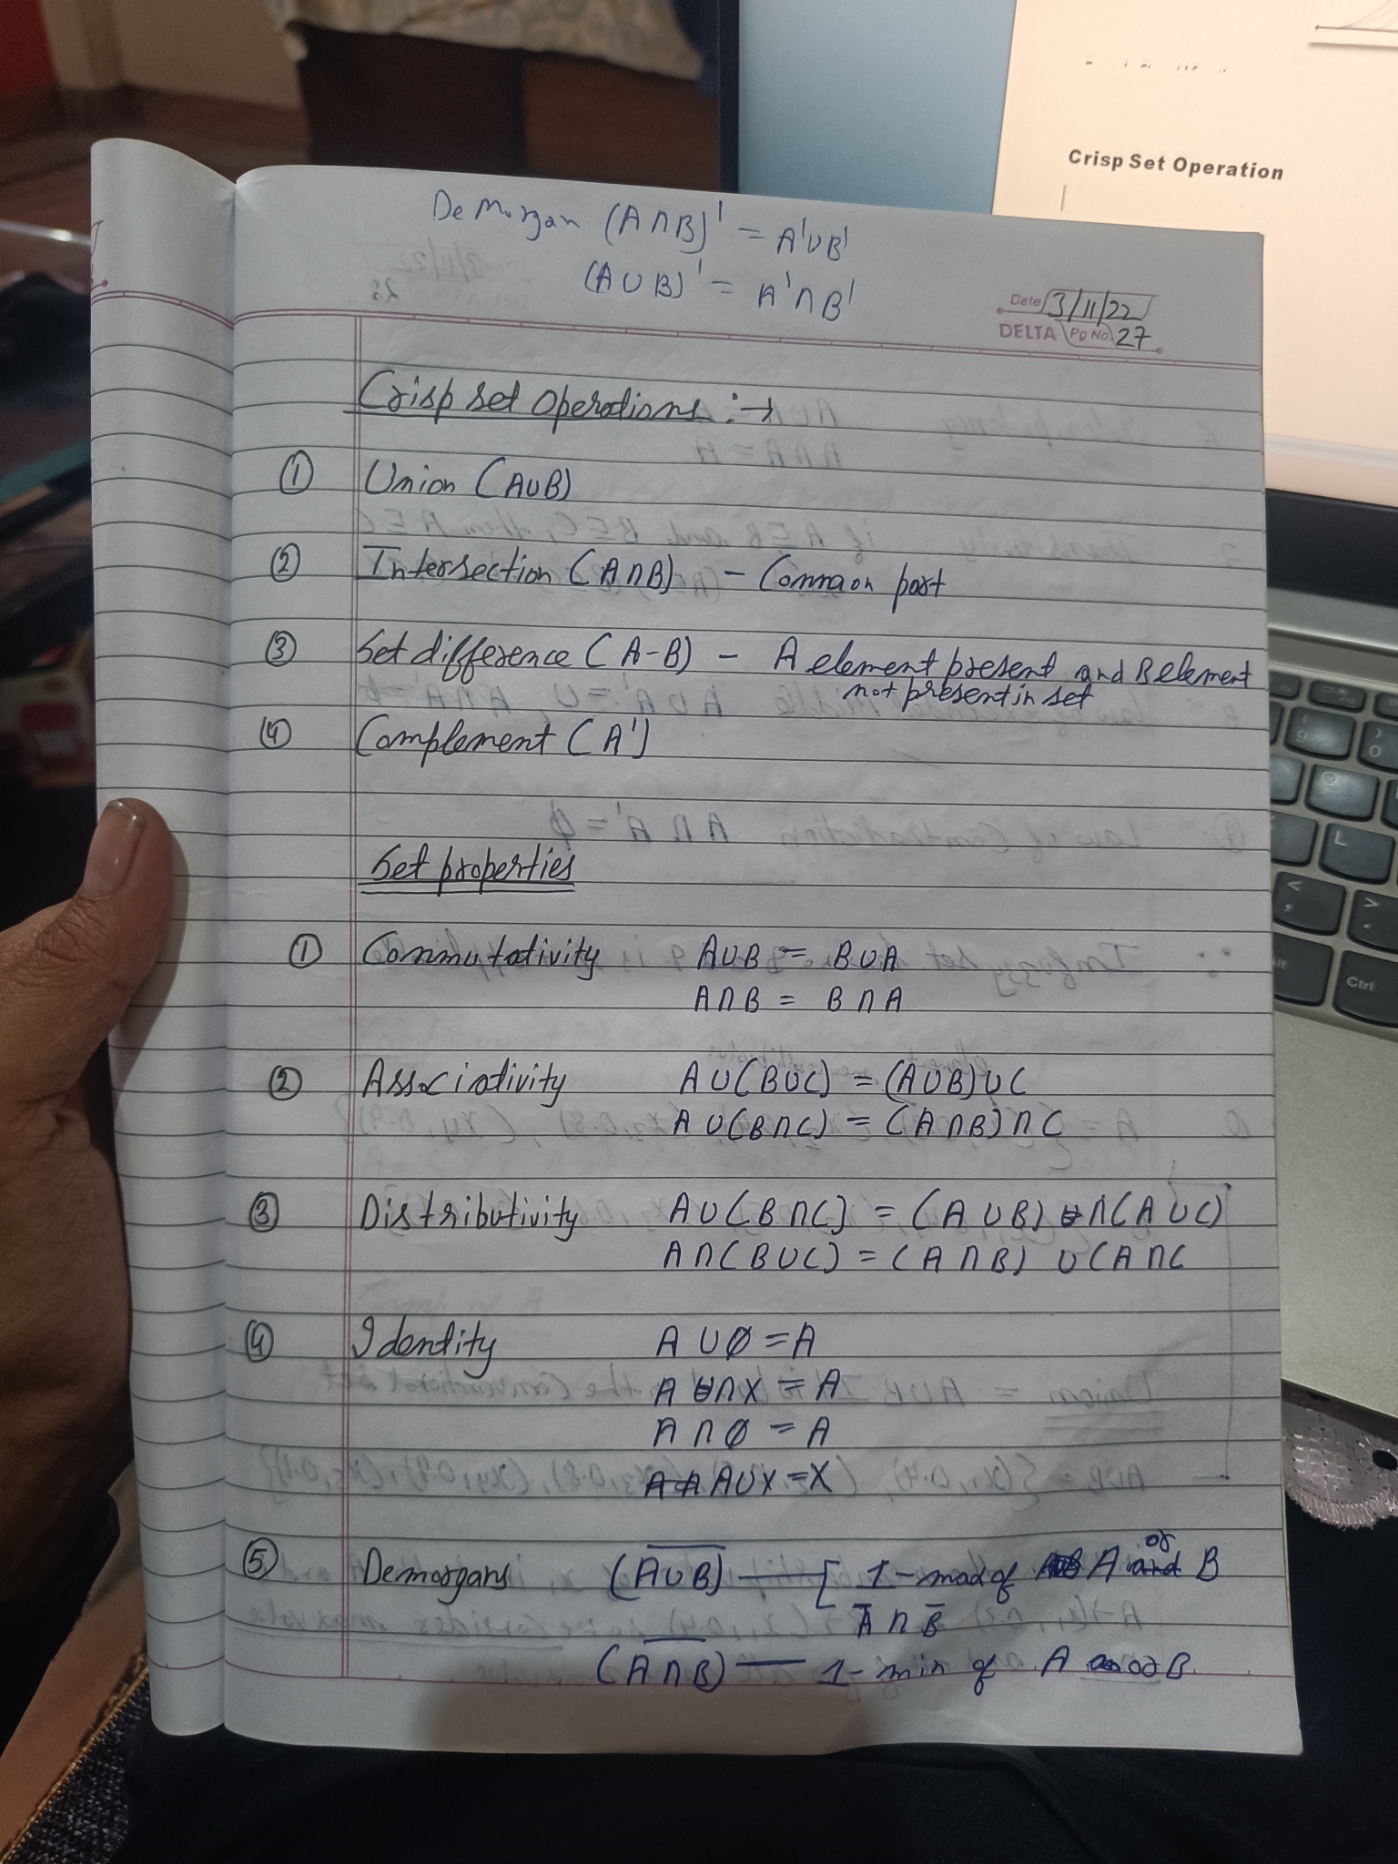 Crisp Set Operation
De Morgan (A∩B)' = A'∪B'
(A∪B)' = A'∩B'
Date 3/11/22
DELTA Pg No. 27
Crisp set operations :→
① Union (A∪B)
② Intersection (A∩B) - Common part
③ Set difference (A-B) - A element present and B element
not present in set
④ Complement (A')
Set properties
① Commutativity A∪B = B∪A
A∩B = B∩A
② Associativity A∪(B∪C) = (A∪B)∪C
A∪(B∩C) = (A∩B)∩C
③ Distributivity A∪(B∩C) = (A∪B)∩(A∪C)
A∩(B∪C) = (A∩B) ∪(A∩C
④ Identity A∪∅ = A
A∩X = A
A∩∅ = A
A∪X = X
⑤ Demorgans (A̅∪̅B̅) — [ 1-mad of A or B
A̅ ∩ B̅
(A̅∩̅B̅) — 1-min of A or B